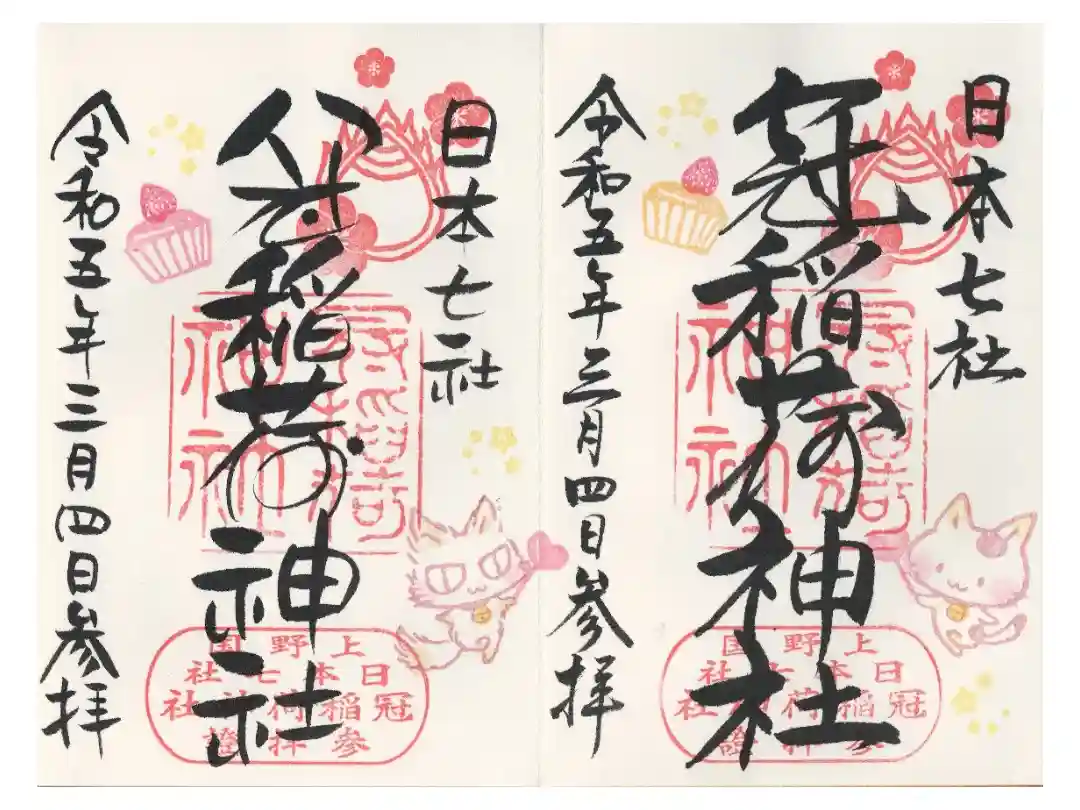 日本七社
冠稲荷神社
令和五年三月四日参拝
上野国
日本七社
冠稲荷神社
參拝證
日本七社
冠稲荷神社
令和五年三月四日参拝
上野国
日本七社
冠稲荷神社
參拝證